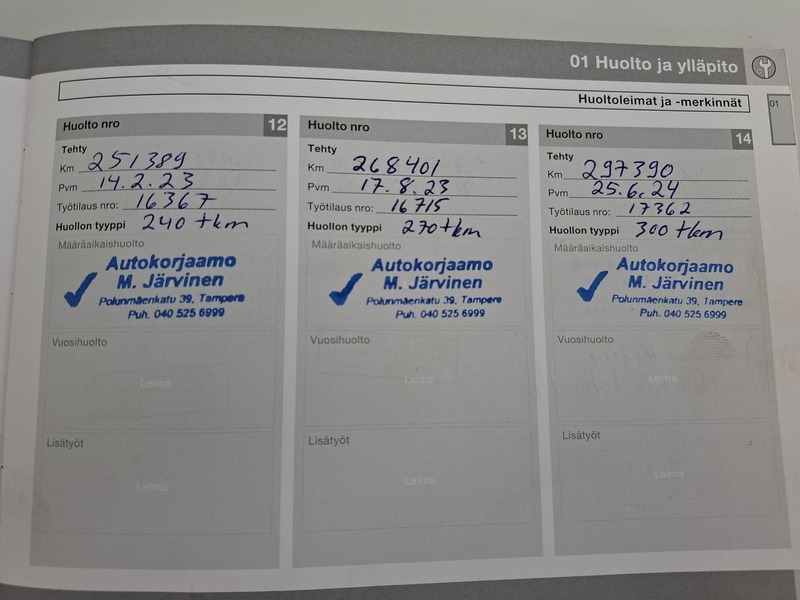 01 Huolto ja ylläpito
Huoltoleimat ja -merkinnät
01
Huolto nro 12
Tehty
Km 251389
Pvm 14.2.23
Työtilaus nro: 16367
Huollon tyyppi 240 tkm
Määräaikaishuolto
Autokorjaamo
M. Järvinen
Polunmäenkatu 39, Tampere
Puh. 040 525 6999
Vuosihuolto
Leima
Lisätyöt
Leima
Huolto nro 13
Tehty
Km 268401
Pvm 17.8.23
Työtilaus nro: 16715
Huollon tyyppi 270 tkm
Määräaikaishuolto
Autokorjaamo
M. Järvinen
Polunmäenkatu 39, Tampere
Puh. 040 525 6999
Vuosihuolto
Leima
Lisätyöt
Leima
Huolto nro 14
Tehty
Km 297390
Pvm 25.6.24
Työtilaus nro: 17362
Huollon tyyppi 300 tkm
Määräaikaishuolto
Autokorjaamo
M. Järvinen
Polunmäenkatu 39, Tampere
Puh. 040 525 6999
Vuosihuolto
Leima
Lisätyöt
Leima